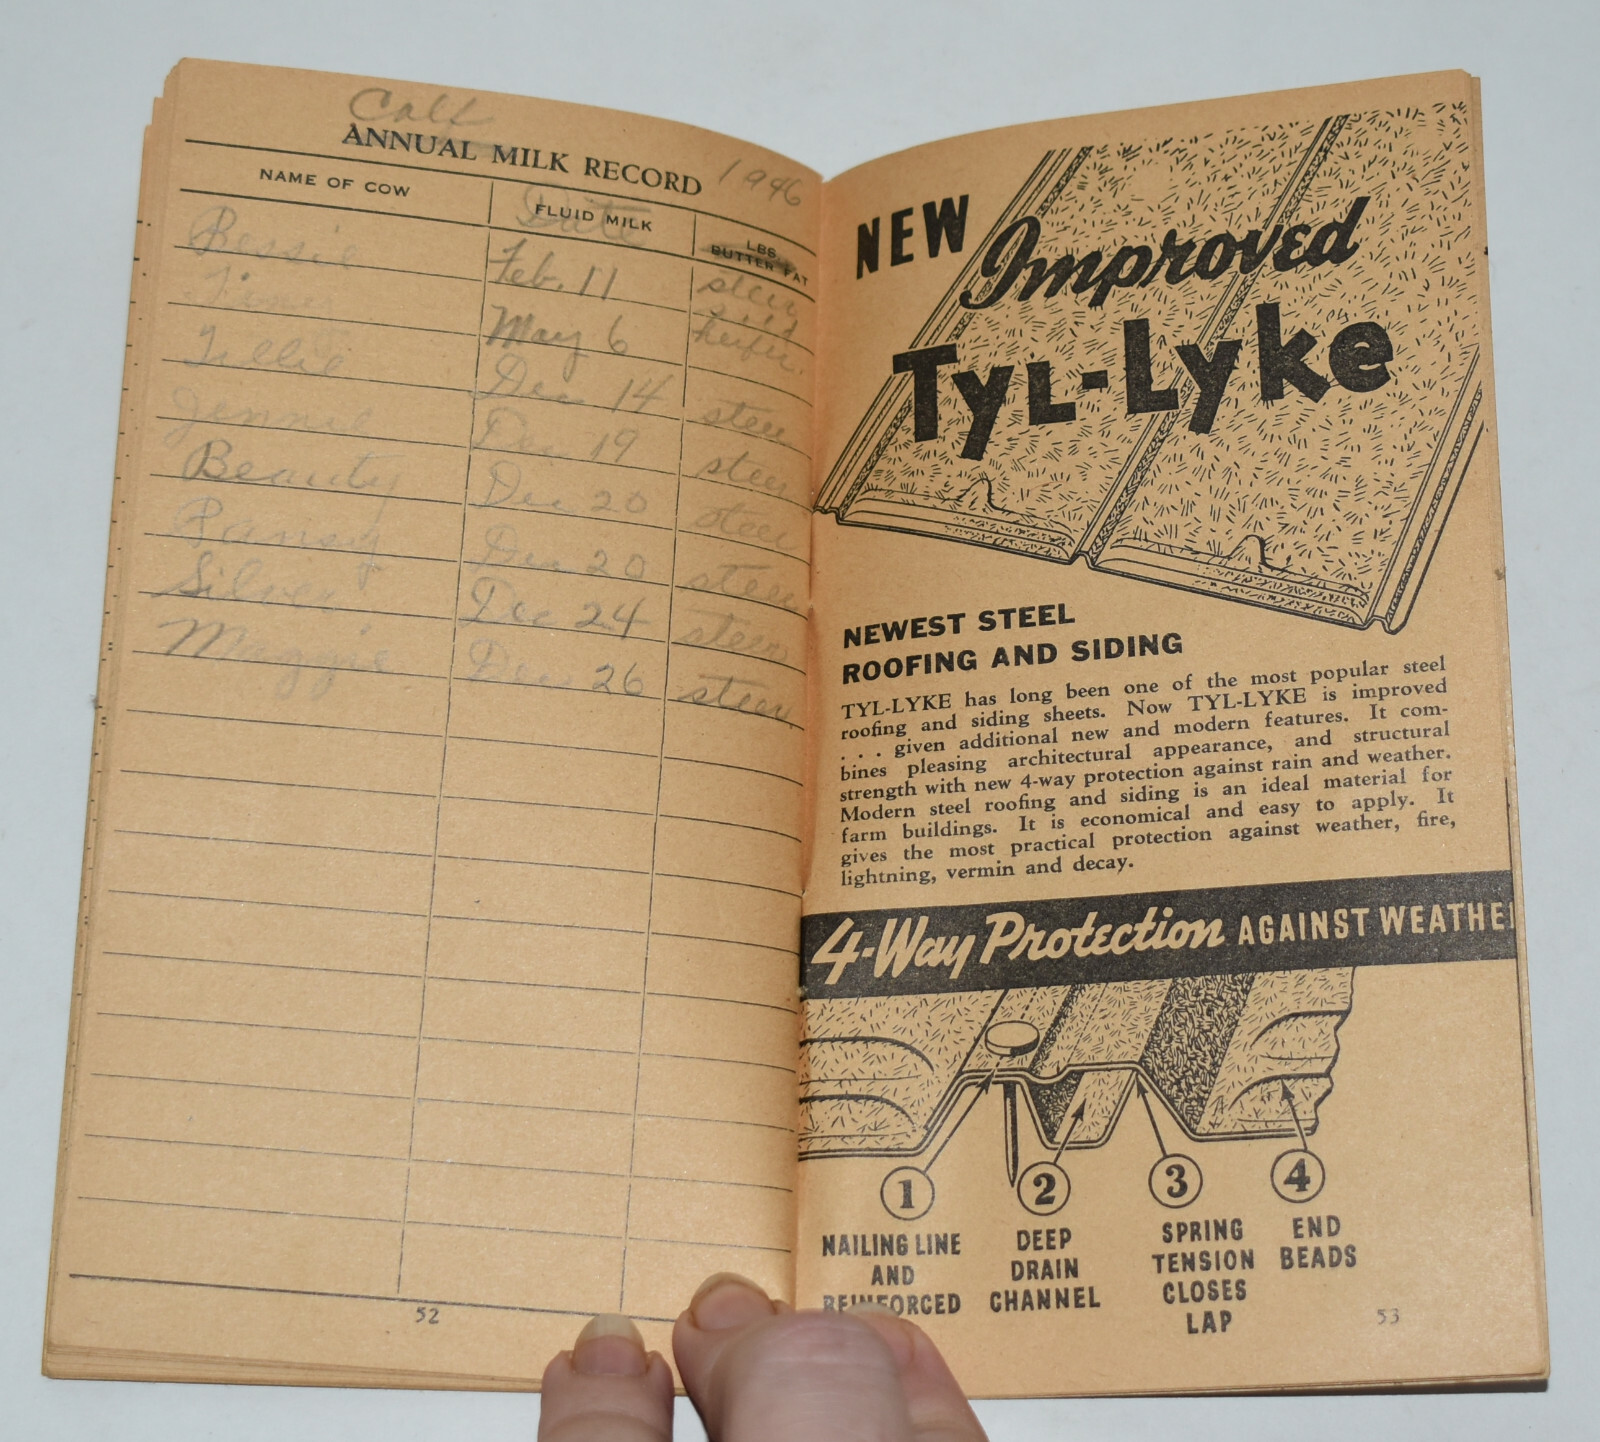 Calf
ANNUAL MILK RECORD 1946
NAME OF COW FLUID MILK LBS. BUTTER FAT
Date
Bessie Feb. 11 steer
May 6 heifer
Tillie Dec 14 steer
Jennie Dec 19 steer
Beauty Dec 20 steer
Pansy Dec 20 steer
Silver Dec 24 steer
Maggie Dec 26 steer
52
NEW Improved
TYL-Lyke
NEWEST STEEL
ROOFING AND SIDING
TYL-LYKE has long been one of the most popular steel
roofing and siding sheets. Now TYL-LYKE is improved
. . . given additional new and modern features. It com-
bines pleasing architectural appearance, and structural
strength with new 4-way protection against rain and weather.
Modern steel roofing and siding is an ideal material for
farm buildings. It is economical and easy to apply. It
gives the most practical protection against weather, fire,
lightning, vermin and decay.
4-Way Protection AGAINST WEATHE
1 2 3 4
NAILING LINE AND REINFORCED
DEEP DRAIN CHANNEL
SPRING TENSION CLOSES LAP
END BEADS
53